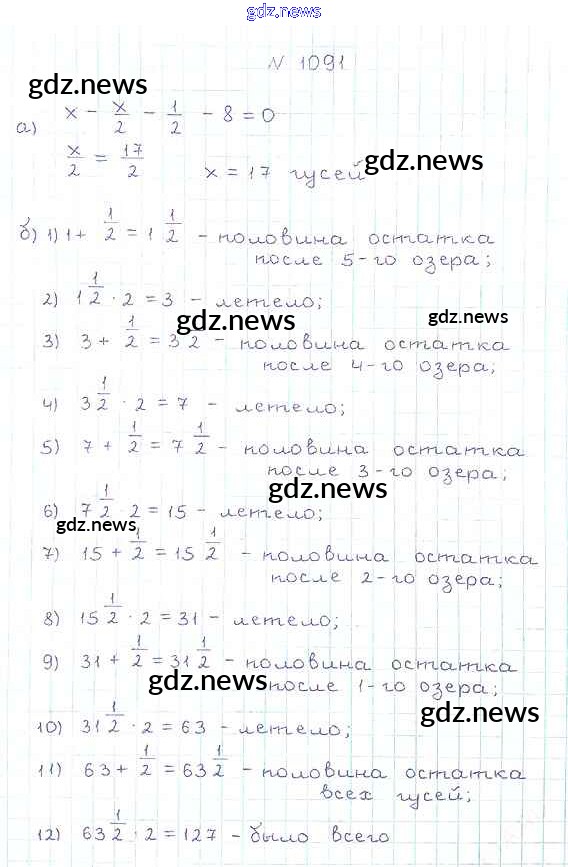 gdz.news
N 1091
gdz.news
а) x - x/2 - 1/2 - 8 = 0
x/2 = 17/2 x = 17 гусей
gdz.news
б) 1) 1 + 1/2 = 1 1/2 - половина остатка
после 5-го озера;
2) 1 1/2 · 2 = 3 - летело;
gdz.news
gdz.news
3) 3 + 1/2 = 3 2 - половина остатка
после 4-го озера;
4) 3 1/2 · 2 = 7 - летело;
5) 7 + 1/2 = 7 1/2 - половина остатка
после 3-го озера;
gdz.news
6) 7 1/2 · 2 = 15 - летело;
gdz.news
7) 15 + 1/2 = 15 1/2 - половина остатка
после 2-го озера;
8) 15 1/2 · 2 = 31 - летело;
9) 31 + 1/2 = 31 1/2 - половина остатка
gdz.news
после 1-го озера;
gdz.news
10) 31 1/2 · 2 = 63 - летело;
11) 63 + 1/2 = 63 1/2 - половина остатка
всех гусей;
12) 63 1/2 · 2 = 127 - было всего